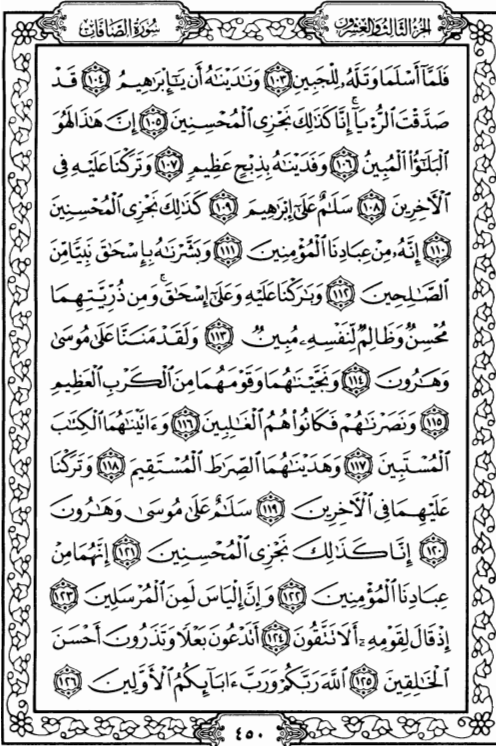 سُورَةُ الصَّافَّاتِ
الجُزْءُ الثَّالِثُ وَالعِشْرُونَ
فَلَمَّآ أَسْلَمَا وَتَلَّهُۥ لِلْجَبِينِ ١٠٣ وَنَٰدَيْنَٰهُ أَن يَٰٓإِبْرَٰهِيمُ ١٠٤ قَدْ
صَدَّقْتَ الرُّءْيَآ ۚ إِنَّا كَذَٰلِكَ نَجْزِى الْمُحْسِنِينَ ١٠٥ إِنَّ هَٰذَا لَهُوَ
الْبَلَٰٓؤُا الْمُبِينُ ١٠٦ وَفَدَيْنَٰهُ بِذِبْحٍ عَظِيمٍ ١٠٧ وَتَرَكْنَا عَلَيْهِ فِى
الْءَاخِرِينَ ١٠٨ سَلَٰمٌ عَلَىٰٓ إِبْرَٰهِيمَ ١٠٩ كَذَٰلِكَ نَجْزِى الْمُحْسِنِينَ
١١٠ إِنَّهُۥ مِنْ عِبَادِنَا الْمُؤْمِنِينَ ١١١ وَبَشَّرْنَٰهُ بِإِسْحَٰقَ نَبِيًّا مِّنَ
الصَّٰلِحِينَ ١١٢ وَبَٰرَكْنَا عَلَيْهِ وَعَلَىٰٓ إِسْحَٰقَ ۚ وَمِن ذُرِّيَّتِهِمَا
مُحْسِنٌ وَظَالِمٌ لِّنَفْسِهِۦ مُبِينٌ ١١٣ وَلَقَدْ مَنَنَّا عَلَىٰ مُوسَىٰ
وَهَٰرُونَ ١١٤ وَنَجَّيْنَٰهُمَا وَقَوْمَهُمَا مِنَ الْكَرْبِ الْعَظِيمِ
١١٥ وَنَصَرْنَٰهُمْ فَكَانُوا۟ هُمُ الْغَٰلِبِينَ ١١٦ وَءَاتَيْنَٰهُمَا الْكِتَٰبَ
الْمُسْتَبِينَ ١١٧ وَهَدَيْنَٰهُمَا الصِّرَٰطَ الْمُسْتَقِيمَ ١١٨ وَتَرَكْنَا
عَلَيْهِمَا فِى الْءَاخِرِينَ ١١٩ سَلَٰمٌ عَلَىٰ مُوسَىٰ وَهَٰرُونَ
١٢٠ إِنَّا كَذَٰلِكَ نَجْزِى الْمُحْسِنِينَ ١٢١ إِنَّهُمَا مِنْ
عِبَادِنَا الْمُؤْمِنِينَ ١٢٢ وَإِنَّ إِلْيَاسَ لَمِنَ الْمُرْسَلِينَ ١٢٣
إِذْ قَالَ لِقَوْمِهِۦٓ أَلَا تَتَّقُونَ ١٢٤ أَتَدْعُونَ بَعْلًا وَتَذَرُونَ أَحْسَنَ
الْخَٰلِقِينَ ١٢٥ اللَّهَ رَبَّكُمْ وَرَبَّ ءَابَآئِكُمُ الْأَوَّلِينَ ١٢٦
٤٥٠